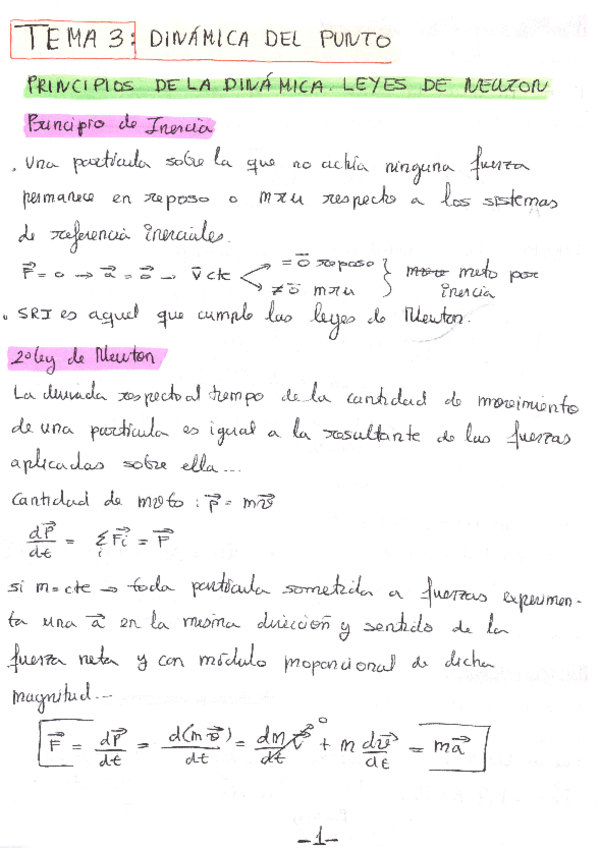 TEMA 3: DINÁMICA DEL PUNTO
PRINCIPIOS DE LA DINÁMICA. LEYES DE NEWTON
Principio de Inercia
. Una partícula sobre la que no actúa ninguna fuerza
permanece en reposo o mru respecto a los sistemas
de referencia inerciales.
F⃗ = 0 → a⃗ = 0⃗ → v⃗ cte < = 0⃗ reposo } mvto por
≠ 0⃗ mru } inercia
. SRI es aquel que cumple las leyes de Newton.
2º ley de Newton
La derivada respecto al tiempo de la cantidad de movimiento
de una partícula es igual a la resultante de las fuerzas
aplicadas sobre ella...
Cantidad de mvto : p⃗ = mv⃗
dp⃗/dt = Σi F⃗i = F⃗
si m = cte → toda partícula sometida a fuerzas experimen-
ta una a⃗ en la misma dirección y sentido de la
fuerza neta y con módulo proporcional de dicha
magnitud...
F⃗ = dp⃗/dt = d(mv⃗)/dt = dm/dt v⃗ 0 + m dv⃗/dt = ma⃗
-1-